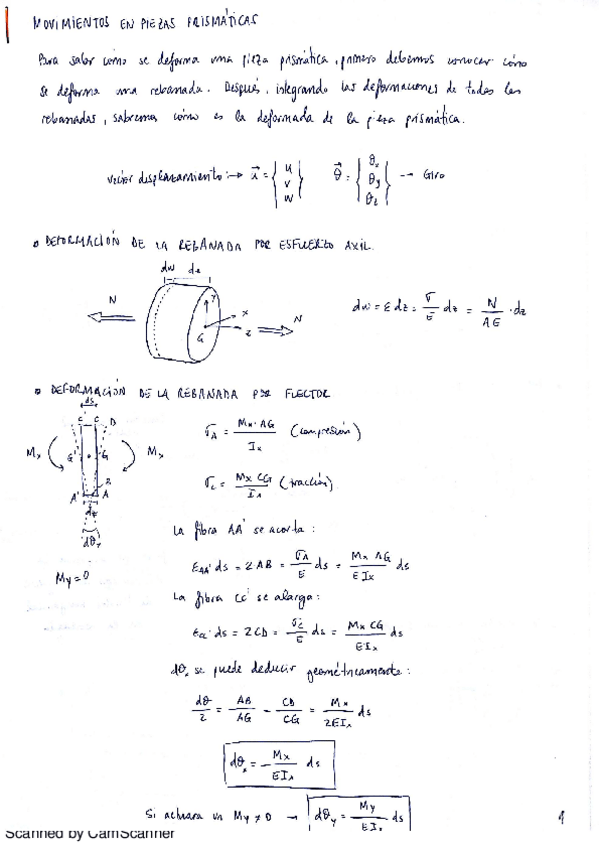 MOVIMIENTOS EN PIEZAS PRISMÁTICAS
Para saber cómo se deforma una pieza prismática, primero debemos conocer cómo
se deforma una rebanada. Después, integrando las deformaciones de todas las
rebanadas, sabremos cómo es la deformada de la pieza prismática.
vector desplazamiento: → u⃗ = { u v w } θ⃗ = { θx θy θz } → Giro
DEFORMACIÓN DE LA REBANADA POR ESFUERZO AXIL.
dw dz
N Y X Z G N
dw = ε dz = σ/E dz = N/AE · dz
DEFORMACIÓN DE LA REBANADA POR FLECTOR
ds
C' C D
Mx G' G Mx
A' A
dθx
My = 0
σA = Mx · AG / Ix (compresión)
σc = Mx CG / Ix (tracción)
La fibra AA' se acorta:
εAA' ds = 2 AB = σA/E ds = Mx AG / E Ix ds
La fibra CC' se alarga:
εcc' ds = 2 CD = σc/E ds = Mx CG / E Ix ds
dθx se puede deducir geométricamente:
dθ/2 = AB/AG = CD/CG = Mx/2EIx ds
dθx = - Mx/EIx ds
Si actuara un My ≠ 0 → dθy = My/EIx ds
1
Scanned by CamScanner